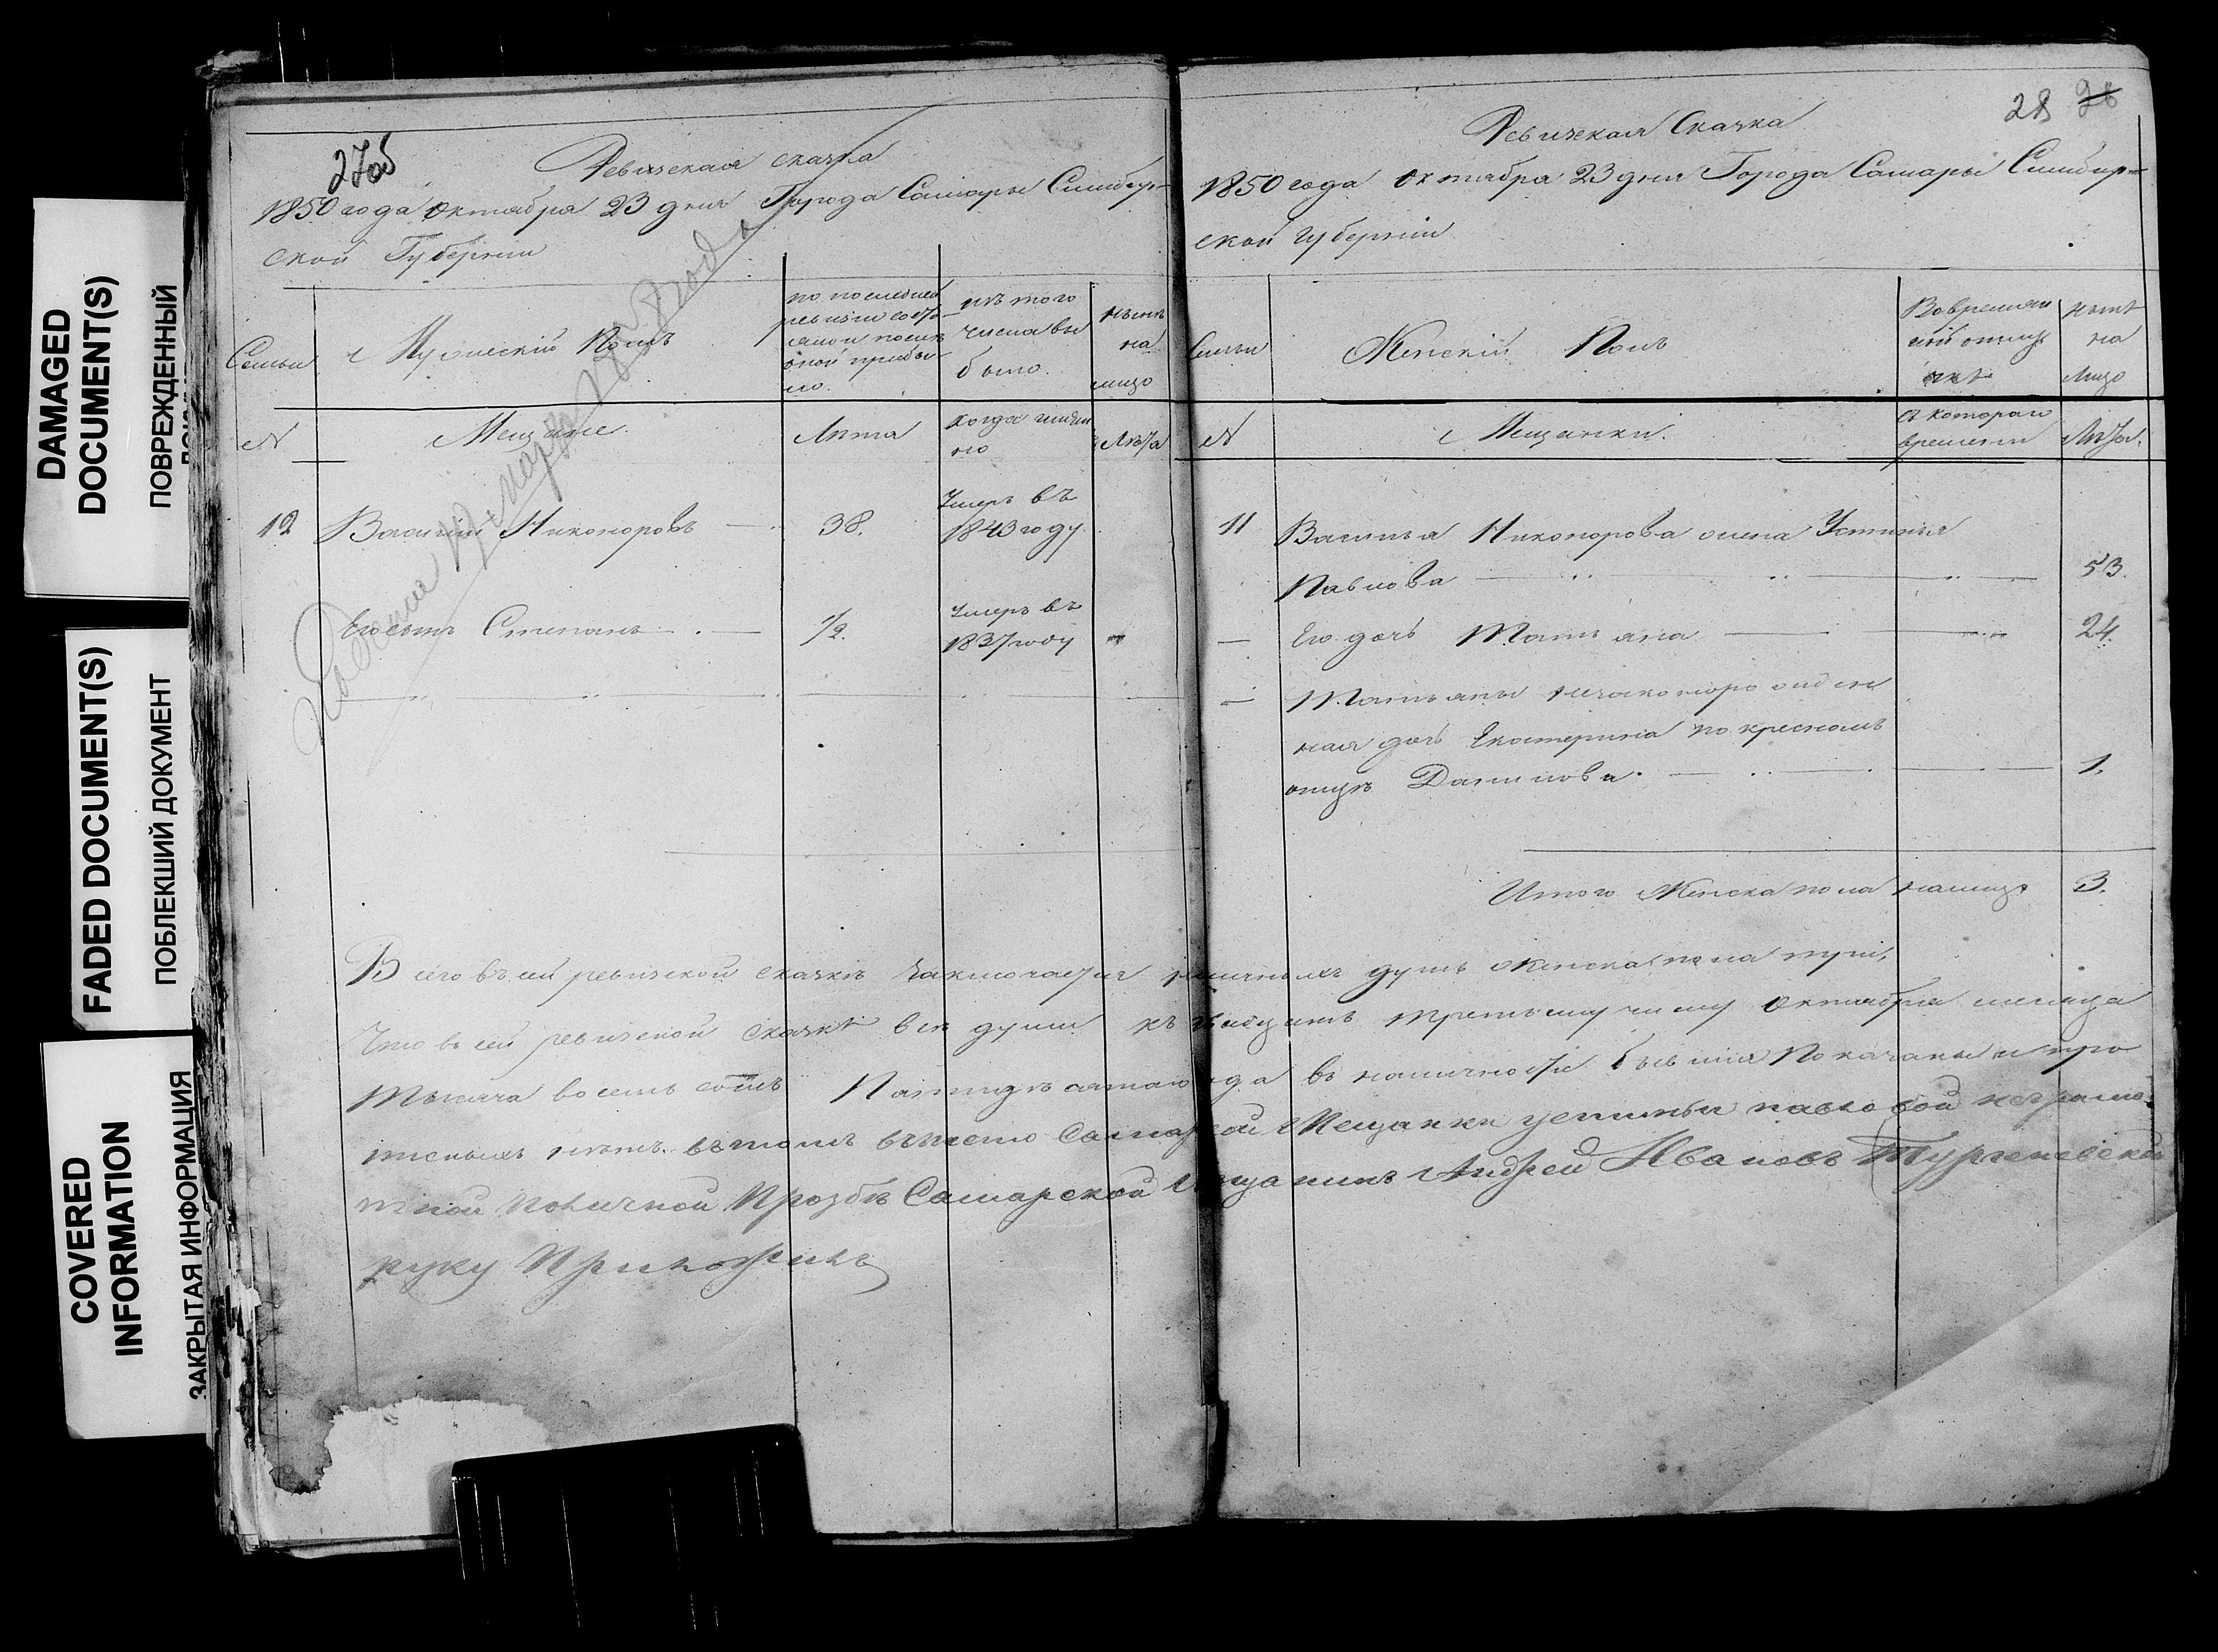 DAMAGED
DOCUMENT(S)
ПОВРЕЖДЕННЫЙ
FADED DOCUMENT(S)
ПОБЛЕКШИЙ ДОКУМЕНТ
COVERED
INFORMATION
ЗАКРЫТАЯ ИНФОРМАЦИЯ
27об
Ревизская сказка
1850 года Октября 23 дня Города Самары Симбир-
ской Губернии
Семьи
Мужеский Полъ
по последней
ревизии состо
яло и после
оной прибы
ло.
изъ того
числа вы
было.
ныне
на
лицо
N
Мещане
Лета
когда имян
но
Лета
12 Василий Никоноровъ 38. Умеръ въ
1843 году
Его сынъ Степанъ 1/2. Умеръ въ
1837 году
28 28
Ревизская Сказка
1850 года Октября 23 дня Города Самары Симбир-
ской губернии
Семьи
Женский Полъ
Во времян
ной отлуч
ке
ныне
на
лицо
N
Мещанки.
съ котораго
времени
Лета.
11 Василья Никонорова жена Устинья
Павлова 53.
Его дочь Татьяна 24.
Татьяны незаконорожден
ная дочь Екатерина по кресномъ
отце Данилова. 1.
Итого Женска пола налицо 3.
Всего въ сей ревиской сказке заключается наличныхъ душъ женска пола три,
Что въ сей ревиской сказке все души къ двадцать третьему числу Октября месяца
тысяча восемь сотъ Пятидесятаго года въ наличности бывшия Показаны и про
писныхъ нетъ. въ томъ вместо Самарской Мещанки устиньи павловой неграмо
тной По личной Прозбе Самарской Мещанинъ Андрей Ивановъ Тургеневской
руку Приложилъ